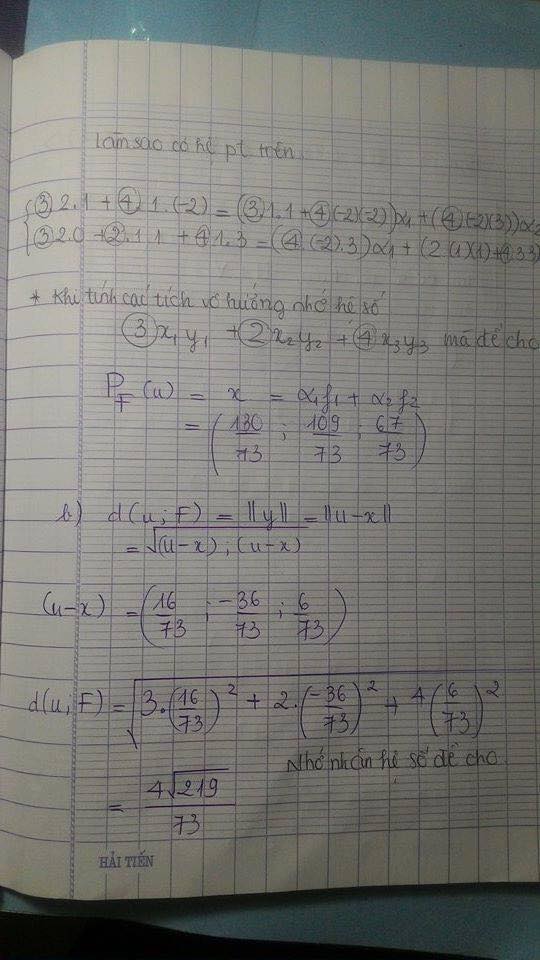 Làm sao có hệ pt trên.
{ ③2.1 + ④1.(-2) = (③1.1 + ④(-2)(-2))α₁ + (④(-2)(3))α₂
③2.0 + ②.1 1 + ④1.3 = (④.(-2).3)α₁ + (2.(1)(1)+④.33)
* Khi tính các tích vô hướng nhớ hệ số
③x₁y₁ + ②x₂y₂ + ④x₃y₃ mà đề cho
P_F(u) = x = α₁f₁ + α₂f₂
= (130/73 ; 109/73 ; 67/73)
b) d(u;F) = ||y|| = ||u-x||
= √(u-x);(u-x)
(u-x) = (16/73 ; -36/73 ; 6/73)
d(u;F) = √3.(16/73)² + 2.(-36/73)² + 4(6/73)²
Nhớ nhân hệ số đề cho
= 4√219/73
HẢI TIẾN